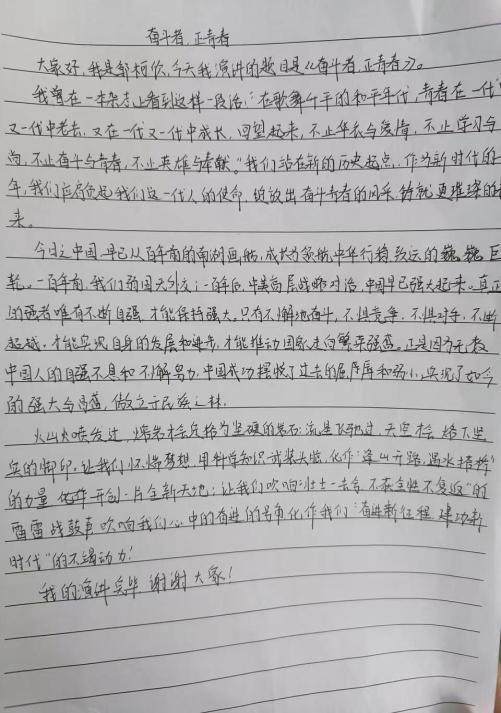 奋斗者,正青春
大家好,我是郭柯欣,今天我演讲的题目是《奋斗者,正青春》。
我曾在一本杂志上看到这样一段话:“在歌舞升平的和平年代,青春在一代
又一代中老去,又在一代又一代中成长,回望起来,不止华衣与爱情,不止学习与
尚,不止奋斗与青春,不止英雄与奉献。”我们站在新的历史起点,作为新时代的
年,我们应肩负起我们这一代人的使命,绽放出奋斗青春的风采,铸就更璀璨的
来。
今日之中国,早已从百年前的南湖画舫,成长为领航中华行稳致远的巍巍巨
轮。一百年前,我们弱国无外交;一百年后,中美高层战略对话,中国早已强大起来。真正
的强者唯有不断自强,才能保持强大。只有不懈地奋斗,不惧竞争,不惧对手,不断
超越,才能实现自身的发展和进步,才能推动国家走向繁荣强盛。正是因为无数
中国人的自强不息和不懈努力,中国成功摆脱了过去的屈辱和弱小,实现了如今
的强大与昌盛,傲立于民族之林。
火山喷发过,熔岩才会凝结为坚硬的岩石;流星飞驰过,天空才会烙下坚
实的脚印。让我们怀揣梦想,用科学知识武装头脑,化作“逢山开路,遇水搭桥”
的力量,去开创一片全新天地;让我们吹响“壮士一去兮不复返”的
雷雷战鼓声,吹响我们心中的奋进的号角,化作我们“奋进新征程,建功新
时代”的不竭动力!
我的演讲完毕,谢谢大家!